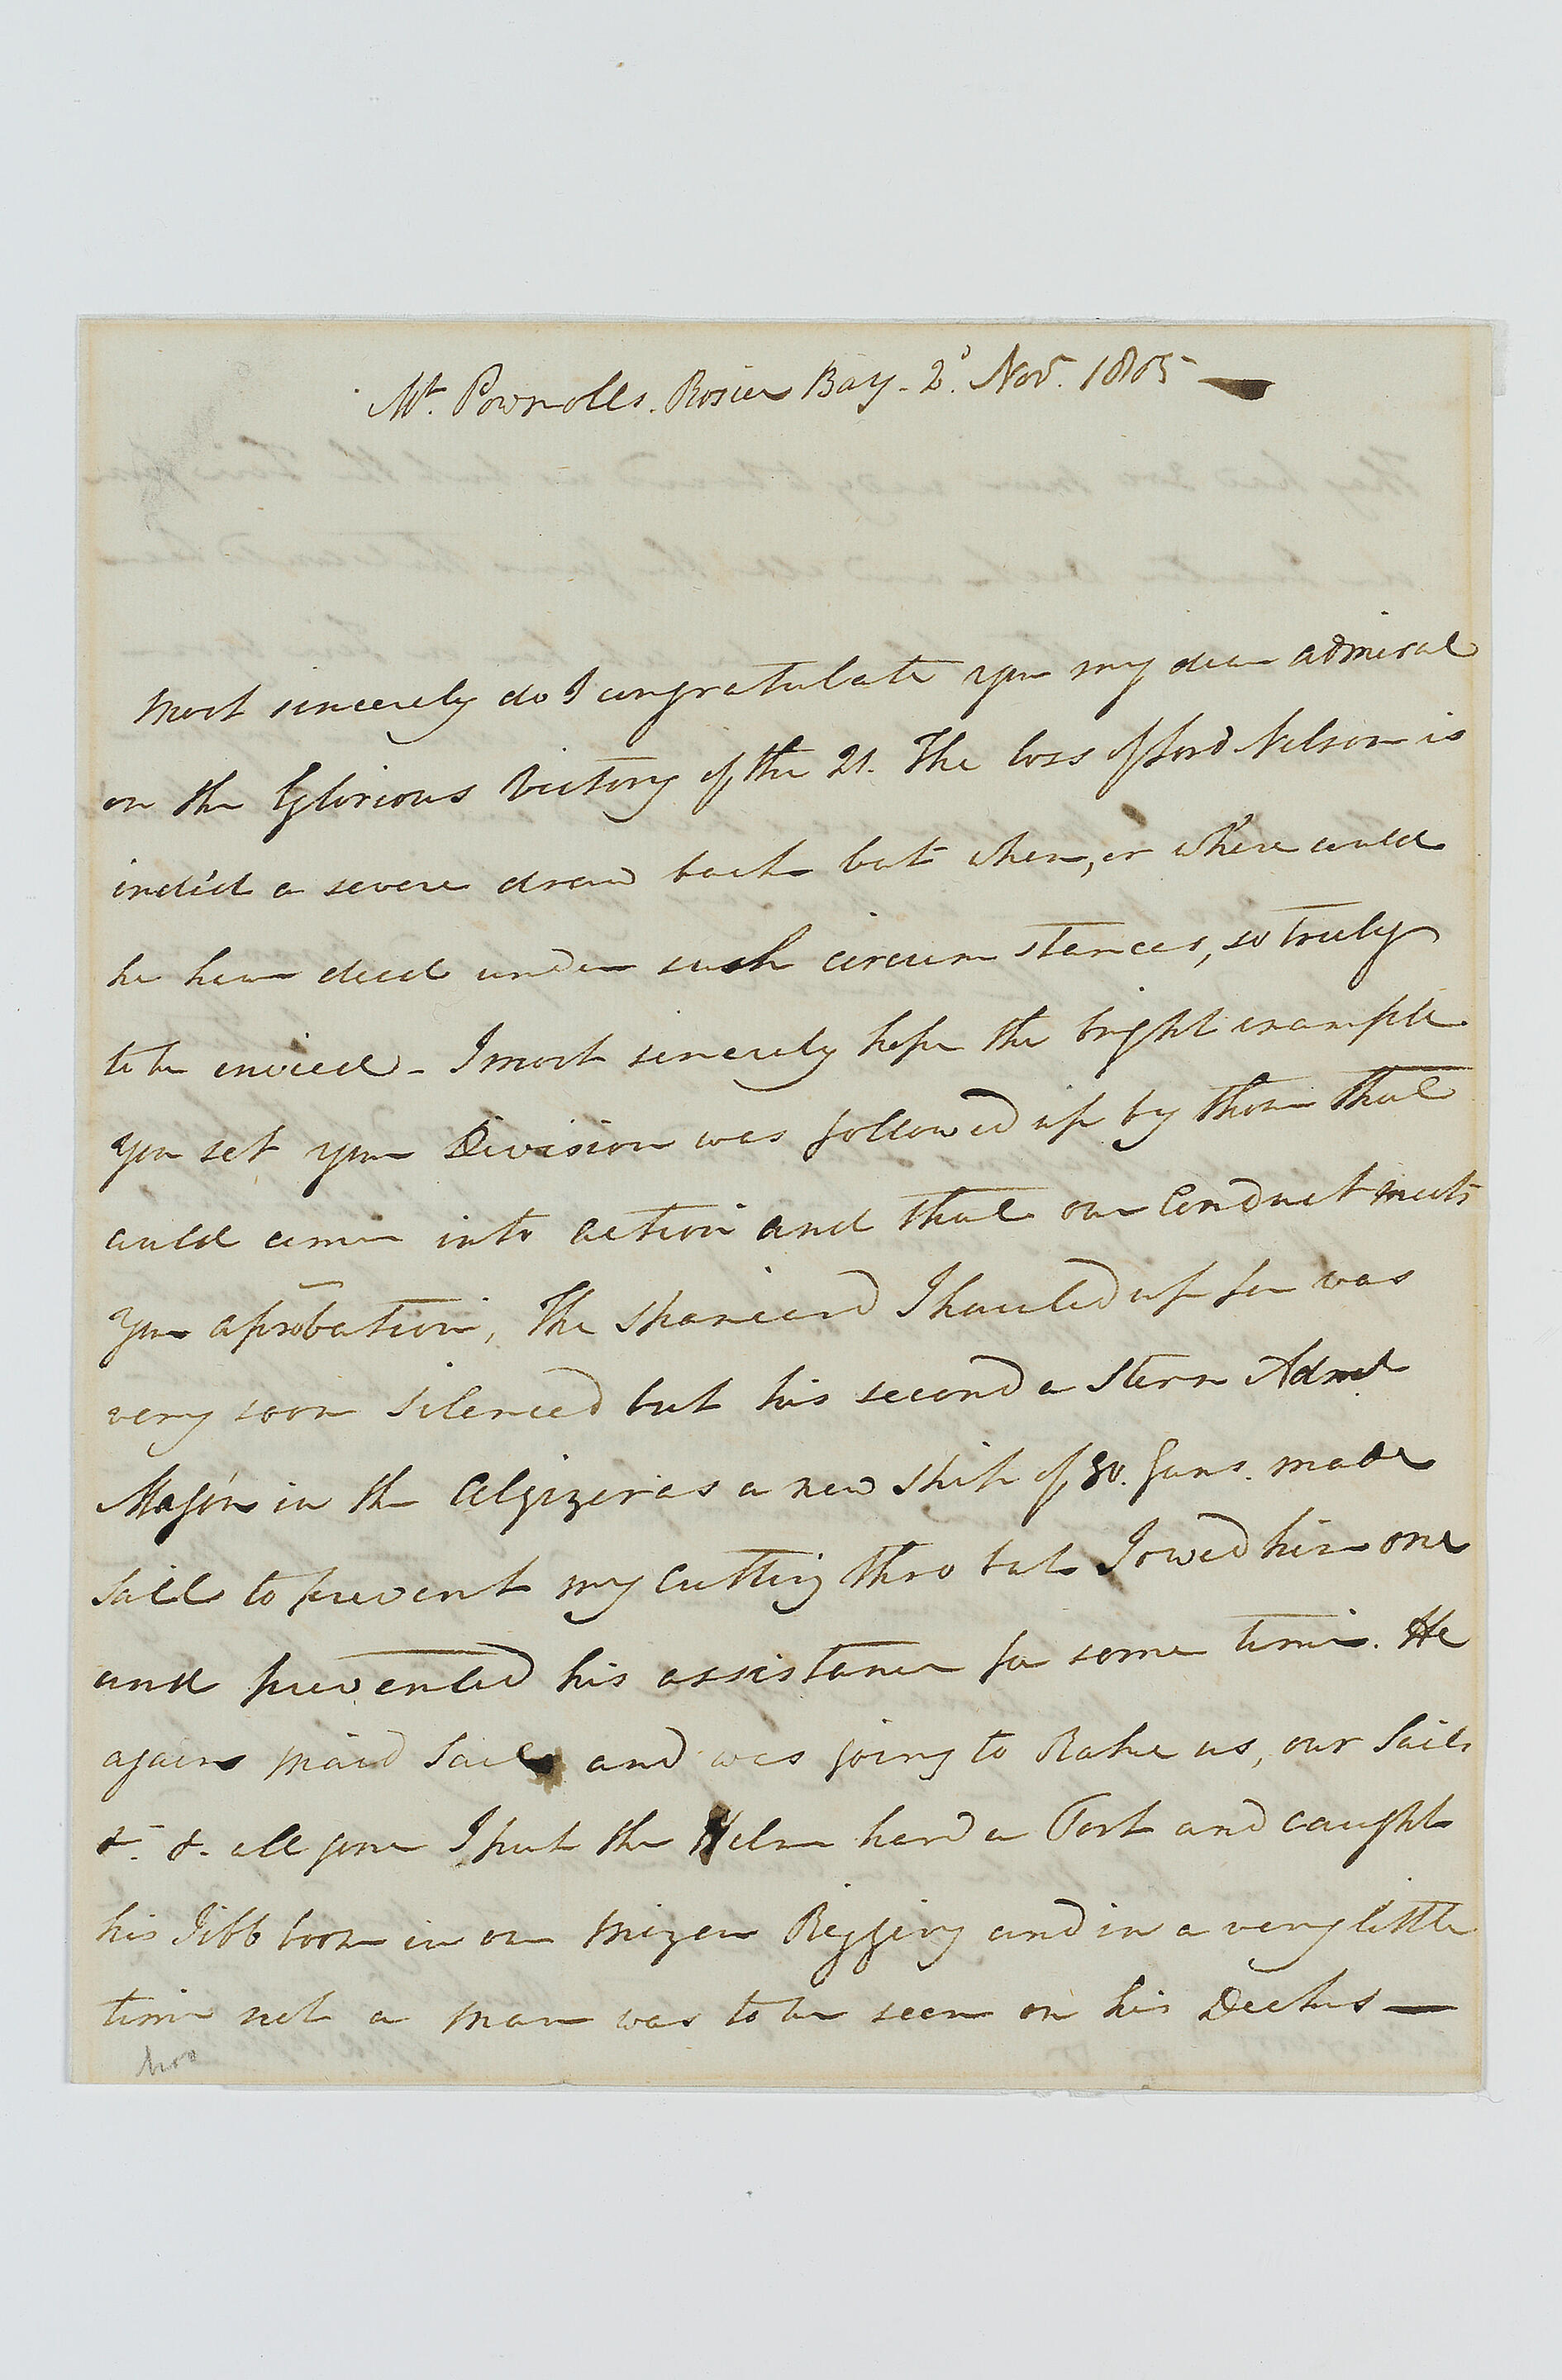 Mr. Pownolls. Rosier Bay. 2d. Novr. 1805
Most sincerely do I congratulate you my dear admiral
on the Glorious Victory of the 21. The loss of Lord Nelson is
indeed a severe draw back but when, or where could
he have died under such circum stances, so truly
to be envied - I most sincerely hope the bright example
you set your Division was followed up by those that
could come into action and that our Conduct meets
your aprobation, The Spaniard I hauled up for was
very soon silenced but his second a stern Adml
Magon in the Algizeras a new ship of 80. Guns. made
sail to prevent my cutting thro but I owed him one
and prevented his assistance for some time. He
again maid Sail and was going to Rake us, our Sails
&. &. all gone I put the Helm hard a Port and caught
his Jibb boom in our Mizen Rigging and in a very little
time not a man was to be seen on his Decks —